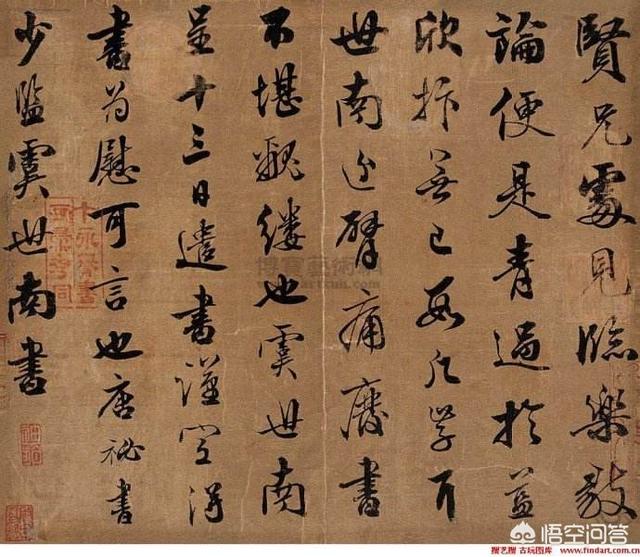 賢兄處見臨樂毅
論便是青過於藍
欣抃無已凡學
世南近臂痛廢書
不堪覼縷也虞世南
呈十三日遣書謹空得
書為慰可言也唐秘書
少監虞世南書
搜艺搜 古玩图库 www.findart.com.cn
悟空问答